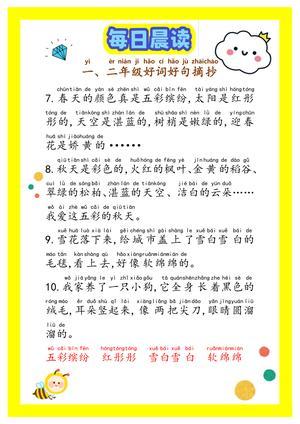 每日晨读
yī èr nián jí hǎo cí hǎo jù zhāi chāo
一、二年级好词好句摘抄
chūn tiān de yán sè zhēn shì wǔ cǎi bīn fēn tài yáng shì hóng tóng
7. 春天的颜色真是五彩缤纷,太阳是红彤
tóng de tiān kōng shì zhàn lán de shù shāo shì nèn lǜ de yíng chūn
彤的,天空是湛蓝的,树梢是嫩绿的,迎春
huā shì jiāo huáng de
花是娇黄的……
qiū tiān shì cǎi sè de huǒ hóng de fēng yè jīn huáng de dào gǔ
8. 秋天是彩色的,火红的枫叶、金黄的稻谷、
cuì lǜ de sōng bǎi zhàn lán de tiān kōng jié bái de yún duǒ
翠绿的松柏、湛蓝的天空、洁白的云朵……
wǒ ài zhè wǔ cǎi de qiū tiān
我爱这五彩的秋天。
xuě huā luò xià lái gěi chéng shì gài shàng le xuě bái xuě bái de
9. 雪花落下来,给城市盖上了雪白雪白的
máo tǎn kàn shàng qù hǎo xiàng ruǎn mián mián de
毛毯,看上去,好像软绵绵的。
wǒ jiā yǎng le yì zhī xiǎo gǒu tā quán shēn zhǎng zhe hēi sè de
10. 我家养了一只小狗,它全身长着黑色的
róng máo ěr duo shù qǐ lái xiàng liǎng bǎ jiān dāo yǎn jīng yuán liū
绒毛,耳朵竖起来,像两把尖刀,眼睛圆溜
liū de
溜的。
wǔ cǎi bīn fēn hóng tóng tóng xuě bái xuě bái ruǎn mián mián
五彩缤纷 红彤彤 雪白雪白 软绵绵